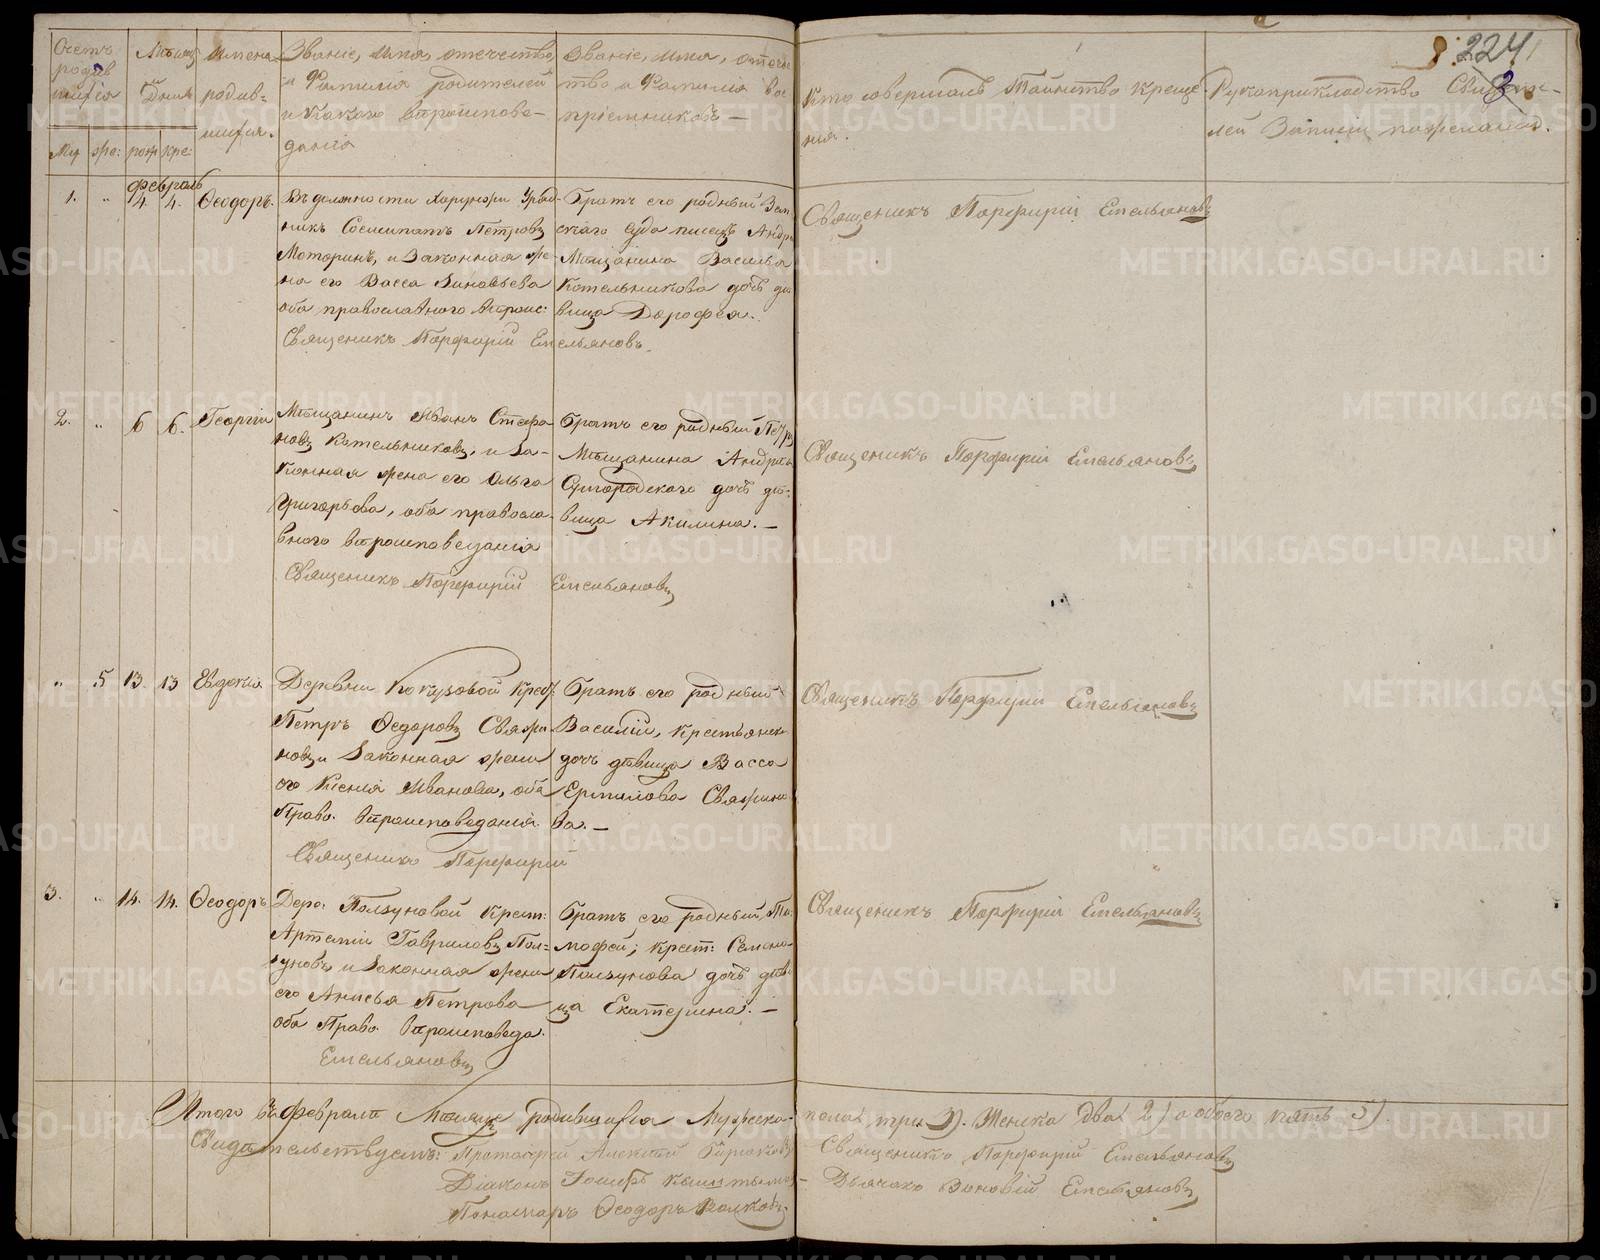 224
Счетъ родившихся
Мѣсяцъ и День
Имена родившихся.
Званіе, имя, отечество, и Фамилія родителей и какого вѣроисповеданія
Званіе, имя, отечество и Фамилія воспріемниковъ —
Кто совершалъ Таинство крещенія.
Рукоприкладство Свидѣтелей Записи по желанію.
Му же: рож кре:
февраль
1. " 4. 4. Ѳеодоръ.
Въ должности Хорунжи Уряд-
никъ Сосипатъ Петровъ
Моторинъ, и Законная же-
на его Васса Зиновьева
оба православного вѣроис:
Священикъ Порфирій Емельяновъ.
Братъ его родный Зем
скаго Суда писецъ Андр
Мѣщанина Василья
Котельникова дочь дѣ
вица Дорофея.
Священикъ Порфирій Емельяновъ
2. " 6 6. Георгій
Мѣщанинъ Иванъ Стефа-
новъ Котельниковъ, и За-
конная жена его Ольга
Григорьева, оба правосла-
вного вѣроисповеданія
Священикъ Порфирій Емельяновъ
Братъ его родный Петръ
Мѣщанина Андрея
дочь дѣ-
вица Акилина. —
Священикъ Порфирій Емельяновъ
" 5 13. 13 Евдокия
Деревни Кокузовой Крес:
Петръ Ѳедоровъ Свяжи-
новъ и Законная жена
его Ксенія Иванова, оба
Право. Вѣроисповеданія.
Священикъ Порфирій
Братъ его родный
Василій, Крестьянск
дочь дѣвица Васса
Ермилова Свяжино
ва. —
Священикъ Порфирій Емельяновъ
3. " 14. 14. Ѳеодоръ
Дере: Ползуновой Крест:
Артемій Гавриловъ Пол=
зуновъ, и Законная жена
его Анисья Петрова
оба Право. Вѣроисповеда.
Емельяновъ
Братъ его родный Ти
мофей; Крест: Семена
Ползунова дочь дѣв
ица Екатерина. —
Священикъ Порфирій Емельяновъ
Итого въ Февралѣ Мѣсяце родившихся Мужеска- пола (три 3). Женска два( 2) а обоего пять 5).
Свидѣтельствуемъ: Протоіерей Алексѣй Бирюковъ Священикъ Порфирій Емельяновъ
Діаконъ Іосифъ - Дьячокъ Зиновій Емельяновъ
Пономарь Ѳеодоръ Волковъ.
METRIKI.GASO-URAL.RU